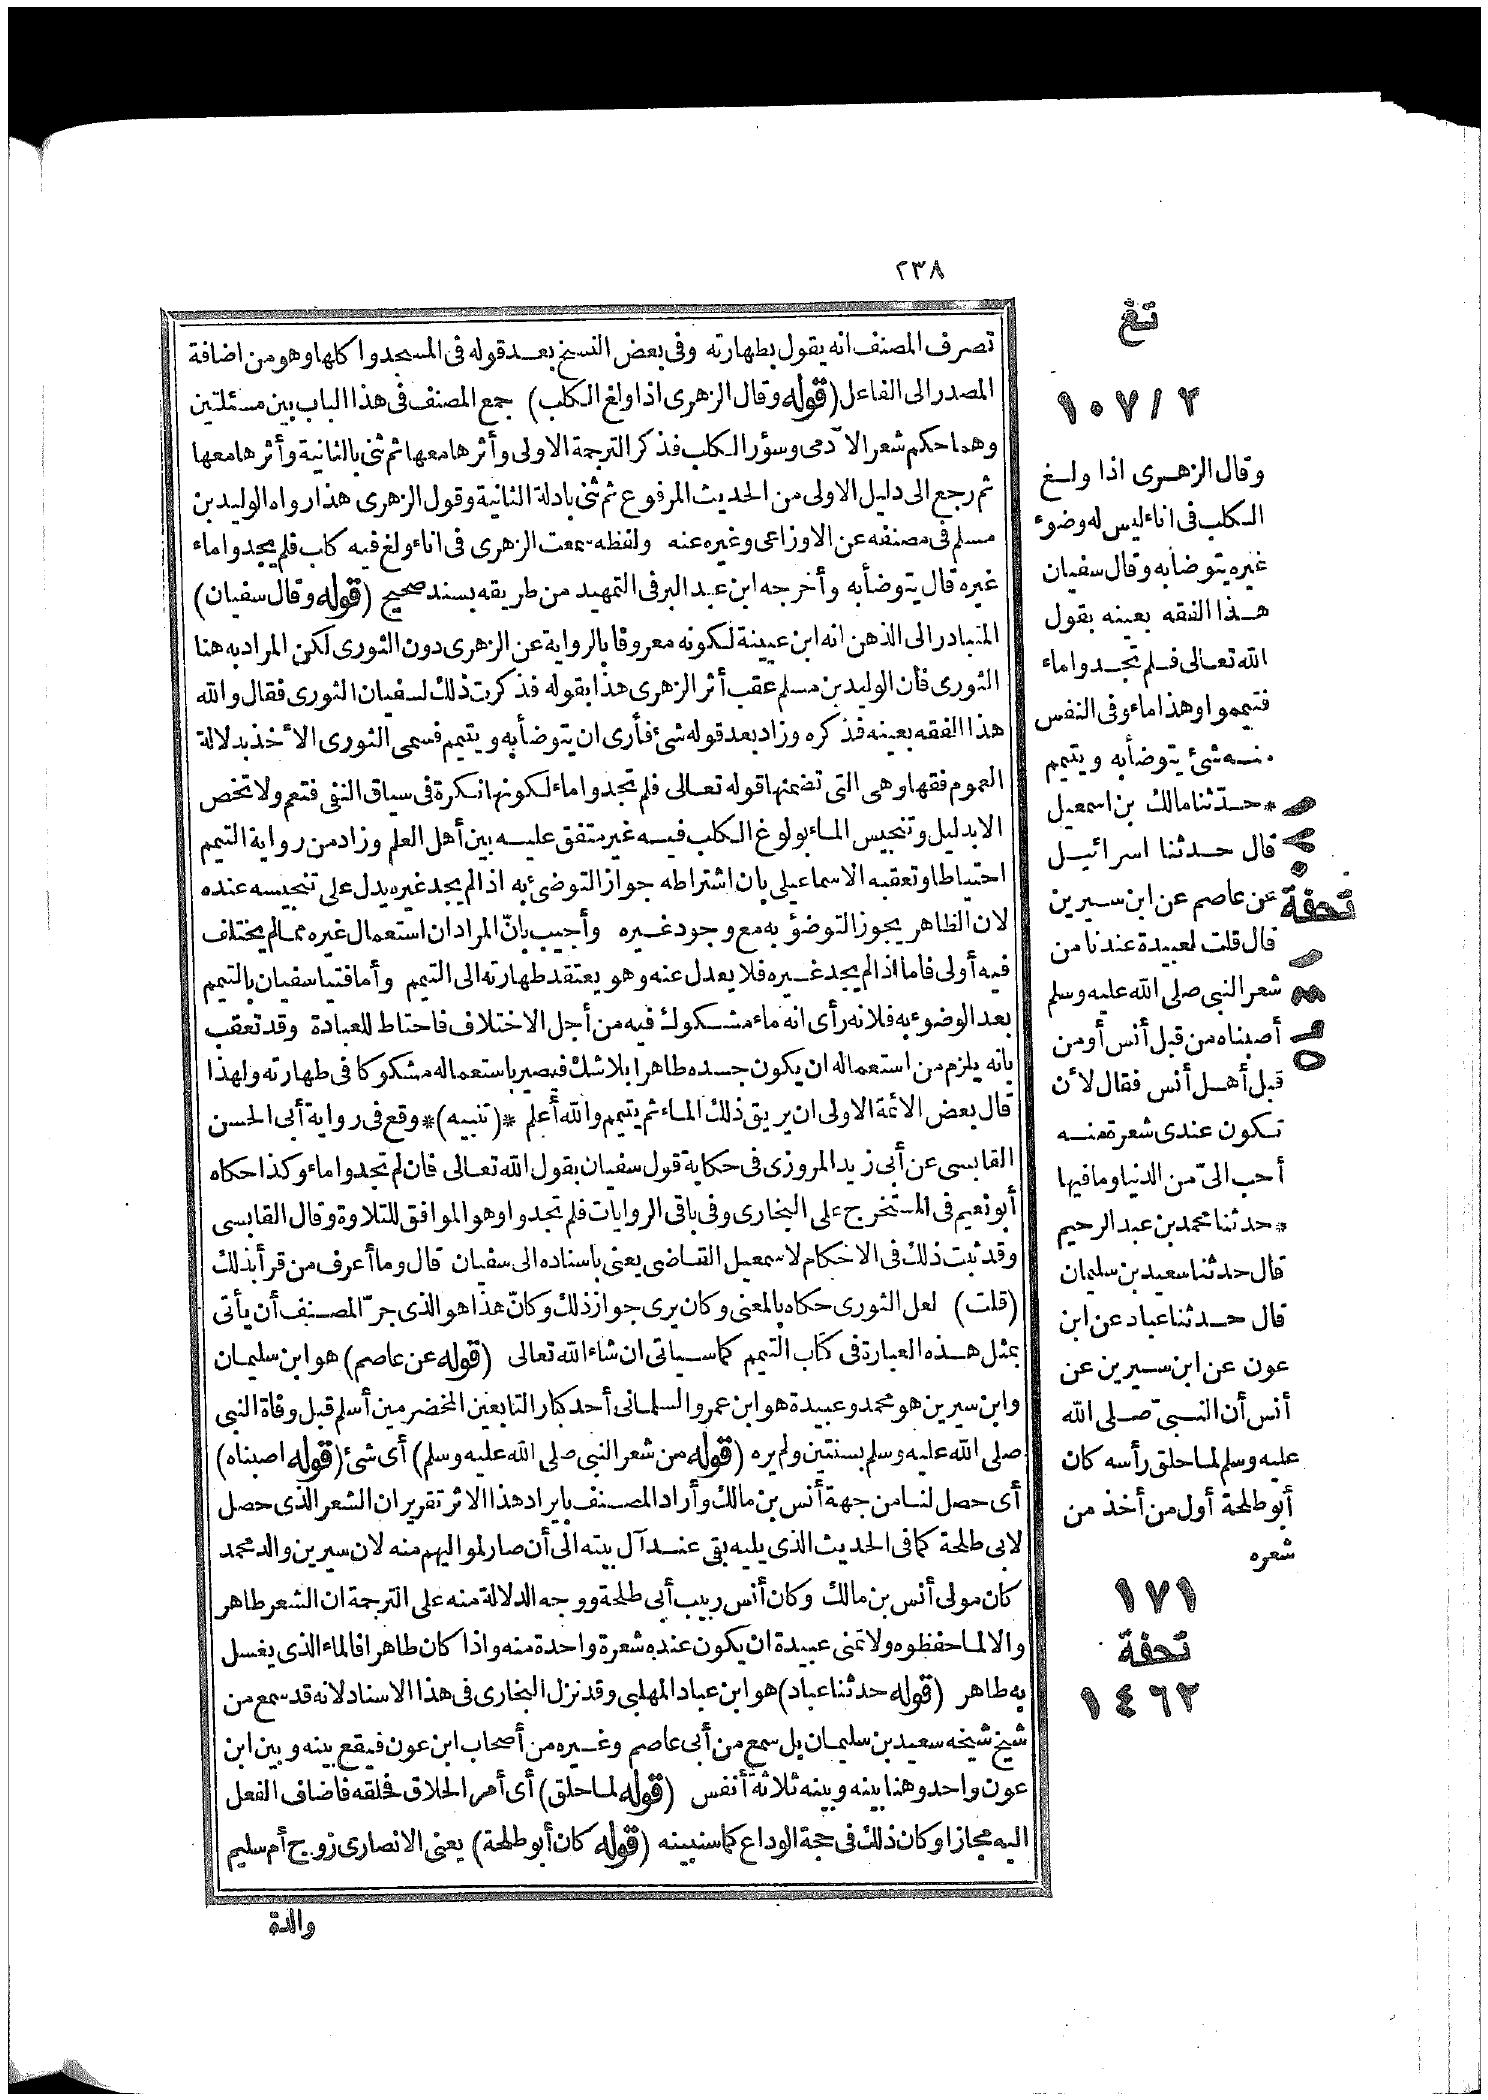 ٢٣٨
تصرف المصنف انه يقول بطهارته وفى بعض النسخ بعد قوله فى المسجد وا كلها وهو من اضافة
المصدر الى الفاعل (قوله وقال الزهرى اذا ولغ الكلب) جمع المصنف فى هذا الباب بين مسئلتين
وهما حكم شعر الآدمى وسؤر الكلب فذكر الترجمة الاولى وأثرها معها ثم ثنى بالثانية وأثرها معها
ثم رجع الى دليل الاولى من الحديث المرفوع ثم ثنى بادلة الثانية وقول الزهرى هذا رواه الوليد بن
مسلم فى مصنفه عن الاوزاعى وغيره عنه ولفظه سمعت الزهرى فى اناء ولغ فيه كلب فلم يجدوا ماء
غيره قال يتوضأ به وأخرجه ابن عبد البر فى التمهيد من طريقه بسند صحيح (قوله وقال سفيان)
المتبادر الى الذهن انه ابن عيينة لكونه معروفا بالرواية عن الزهرى دون الثورى لكن المراد به هنا
الثورى فان الوليد بن مسلم عقب أثر الزهرى هذا بقوله فذكرت ذلك لسفيان الثورى فقال والله
هذا الفقه بعينه فذكره وزاد بعد قوله شئ فأرى ان يتوضأ به ويتيمم فسمى الثورى الأخذ بدلالة
العموم فقها وهى التى تضمنها قوله تعالى فلم تجدوا ماء لكونها نكرة فى سياق النفى فتعم ولا تخص
الا بدليل وتنجيس الماء بولوغ الكلب فيه غير متفق عليه بين أهل العلم وزاد من رواية التيمم
احتياطا وتعقبه الاسماعيلى بان اشتراطه جواز التوضئ به اذا لم يجد غيره يدل على تنجيسه عنده
لان الظاهر يجوز التوضؤ به مع وجود غيره وأجيب بانّ المراد ان استعمال غيره مما لم يختلف
فيه أولى فاما اذا لم يجد غيره فلا يعدل عنه وهو يعتقد طهارته الى التيمم وأما فتيا سفيان بالتيمم
بعد الوضوء به فلانه رأى انه ماء مشكوك فيه من أجل الاختلاف فاحتاط للعبادة وقد تعقب
بانه يلزم من استعماله ان يكون جسده طاهرا بلا شك فيصير باستعماله مشكوكا فى طهارته ولهذا
قال بعض الائمة الاولى ان يريق ذلك الماء ثم يتيمم والله أعلم *(تنبيه)* وقع فى رواية أبى الحسن
القابسى عن أبى زيد المروزى فى حكاية قول سفيان بقول الله تعالى فان لم تجدوا ماء وكذا حكاه
أبو نعيم فى المستخرج على البخارى وفى باقى الروايات فلم تجدوا وهو الموافق للتلاوة وقال القابسى
وقد ثبت ذلك فى الاحكام لاسمعيل القاضى يعنى باسناده الى سفيان قال وما أعرف من قرأ بذلك
(قلت) لعل الثورى حكاه بالمعنى وكان يرى جواز ذلك وكانّ هذا هو الذى جرّ المصنف أن يأتى
بمثل هذه العبارة فى كتاب التيمم كما سياتى ان شاء الله تعالى (قوله عن عاصم) هو ابن سليمان
وابن سيرين هو محمد وعبيدة هو ابن عمرو السلمانى أحد كبار التابعين المخضرمين أسلم قبل وفاة النبى
صلى الله عليه وسلم بسنتين ولم يره (قوله من شعر النبى صلى الله عليه وسلم) أى شئ (قوله اصبناه)
أى حصل لنا من جهة أنس بن مالك وأراد المصنف بايراد هذا الاثر تقرير ان الشعر الذى حصل
لابى طلحة كما فى الحديث الذى يليه بقى عند آل بيته الى أن صار لمواليهم منه لان سيرين والد محمد
كان مولى أنس بن مالك وكان أنس ربيب أبى طلحة ووجه الدلالة منه على الترجمة ان الشعر طاهر
والا لما حفظوه ولا تمنى عبيدة ان يكون عنده شعرة واحدة منه واذا كان طاهرا فالماء الذى يغسل
به طاهر (قوله حدثنا عباد) هو ابن عباد المهلبى وقد نزل البخارى فى هذا الاسناد لانه قد سمع من
شيخ شيخه سعيد بن سليمان بل سمع من أبى عاصم وغيره من أصحاب ابن عون فيقع بينه وبين ابن
عون واحد وهنا بينه وبينه ثلاثة أنفس (قوله لما حلق) أى أمر الحلاق فحلقه فاضاف الفعل
اليه مجازا وكان ذلك فى حجة الوداع كما سنبينه (قوله كان أبو طلحة) يعنى الانصارى زوج أم سليم
والدة
تغ
١٠٧/٢
وقال الزهرى اذا ولغ
الكلب فى اناء ليس له وضوء
غيره يتوضأ به وقال سفيان
هذا الفقه بعينه بقول
الله تعالى فلم تجدوا ماء
فتيمموا وهذا ماء وفى النفس
منه شئ يتوضأ به ويتيمم
* حدّثنا مالك بن اسمعيل
قال حدثنا اسرائيل
عن عاصم عن ابن سيرين
تحفة
قال قلت لعبيدة عندنا من
شعر النبى صلى الله عليه وسلم
أصبناه من قبل أنس أو من
قبل أهل أنس فقال لأن
تكون عندى شعرة منه
أحب الىّ من الدنيا وما فيها
* حدثنا محمد بن عبد الرحيم
قال حدثنا سعيد بن سليمان
قال حدثنا عباد عن ابن
عون عن ابن سيرين عن
أنس أن النبىّ صلى الله
عليه وسلم لما حلق رأسه كان
أبو طلحة أول من أخذ من
شعره
١٧١
تحفة
١٤٦٢